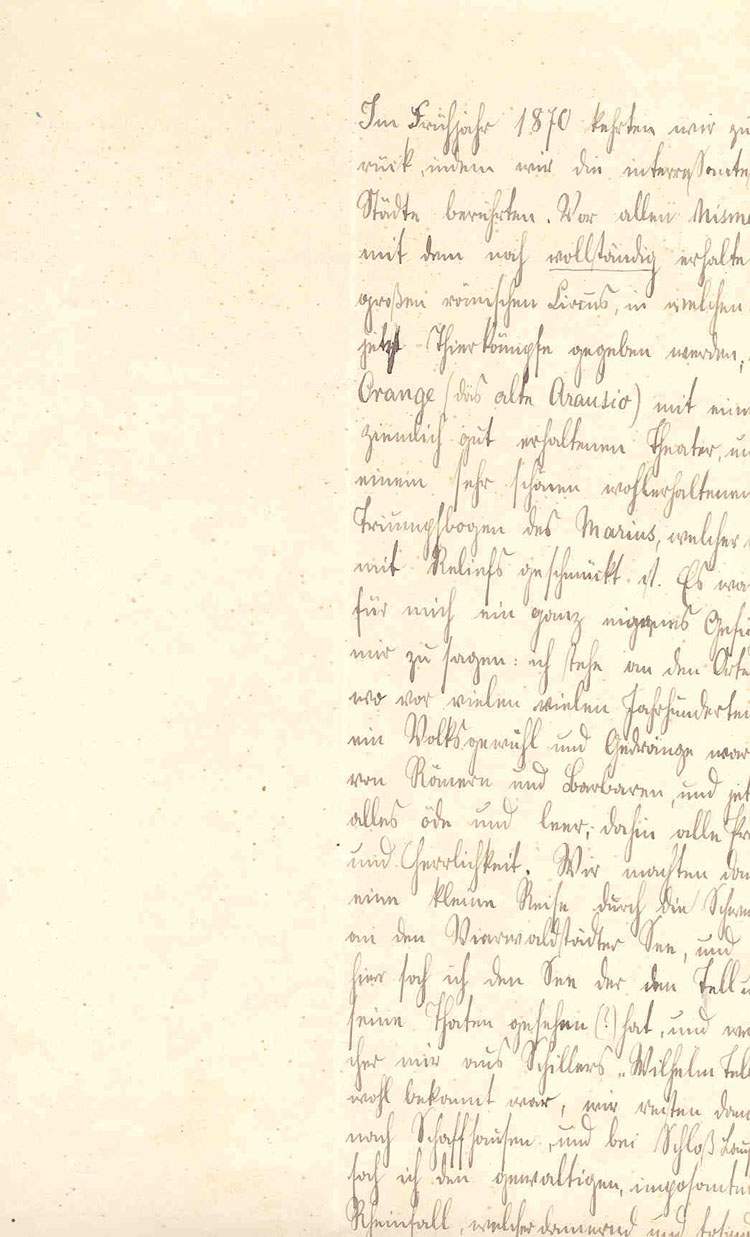 Im Frühjahr 1870 kehrten wir zu
rück, indem wir die interressante
Städte berührten. Vor allen Nisme
mit dem noch vollständig erhalte
großen römischen Circus, in welchen
jetzt Thierkämpfe gegeben werden,
Orange (das alte Arausio) mit eine
ziemlich gut erhaltenen Theater, un
einem sehr schönen wohlerhaltenen
Triumpfbogen des Marius, welcher
mit Reliefs geschmückt ist. Es wa
für mich ein ganz eigenes Gefü
mir zu sagen: ich stehe an den Orte
wo vor vielen vielen Jahrhunderten
ein Volksgewühl und Gedränge war
von Römern und Barbaren, und jet
alles öde und leer; dahin alle Pr
und Herrlichkeit. Wir machten dan
eine kleine Reise durch die Schwe
an den Vierwaldstädter See, und
hier sah ich den See der den Tell u
seine Thaten gesehen (?) hat, und we
cher mir aus Schillers „Wilhelm Tell
wohl bekannt war, wir reisten dann
nach Schaffhausen, und bei Schloß Lauf
sah ich den gewaltigen, imposanten
Rheinfall, welcher donnernd und